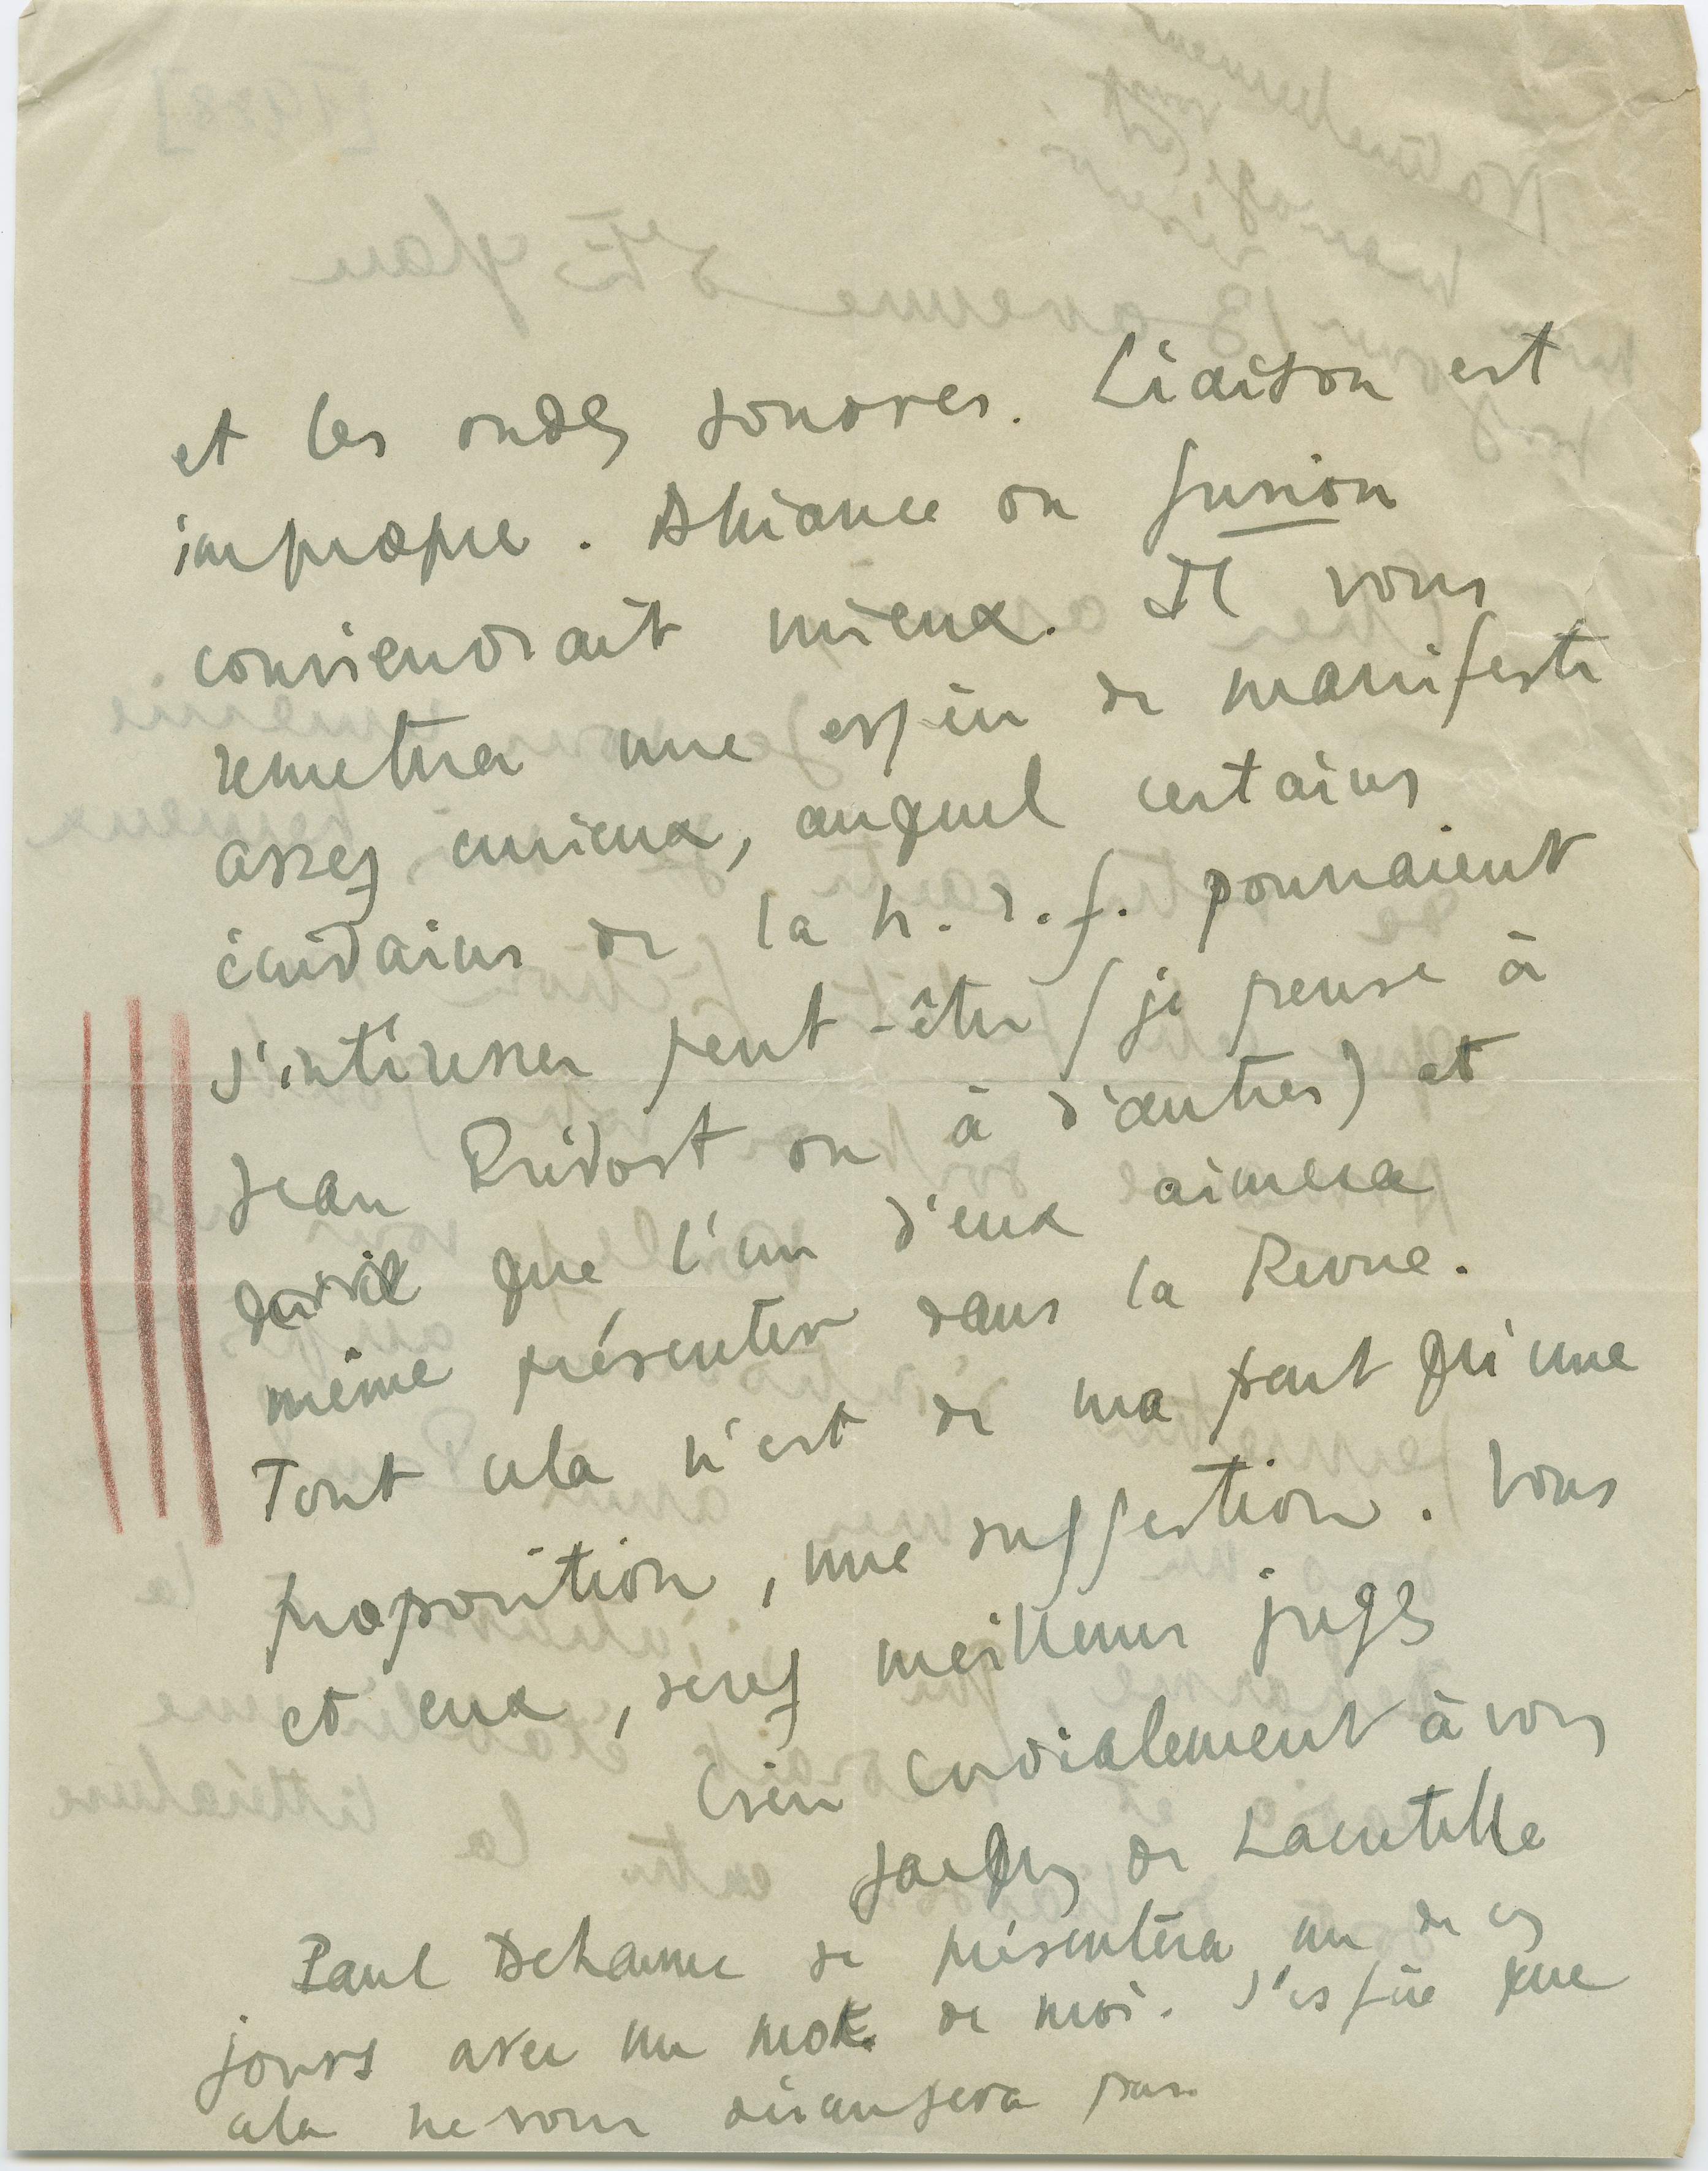 et les ondes sonores. Liaison est
impropre. Alliance ou fusion
conviendrait mieux. Il vous
remettra une espèce de manifeste
assez curieux, auquel certains
écrivains de la n. r. f. pourraient
s'intéresser peut-être (je pense à
Jean Prévost ou à d'autres) et
que l'un d'eux aimera
même présenter dans la Revue.
Tout cela n'est de ma part qu'une
proposition, une suggestion. Vous
et eux, serez meilleurs juges
Bien cordialement à vous
Jacques de Lacretelle
Paul Deharme se présentera un de ces
jours avec un mot de moi. J'espère que
cela ne vous dérangera pas.